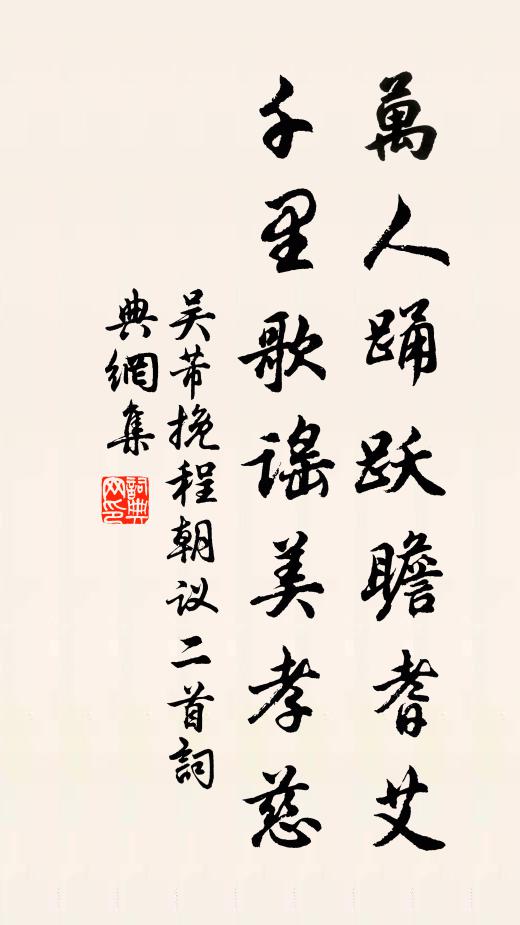 萬人踊跃瞻耆艾
千里歌谣美孝慈
吴芾挽程朝议二首詞
典網集
詞典网印